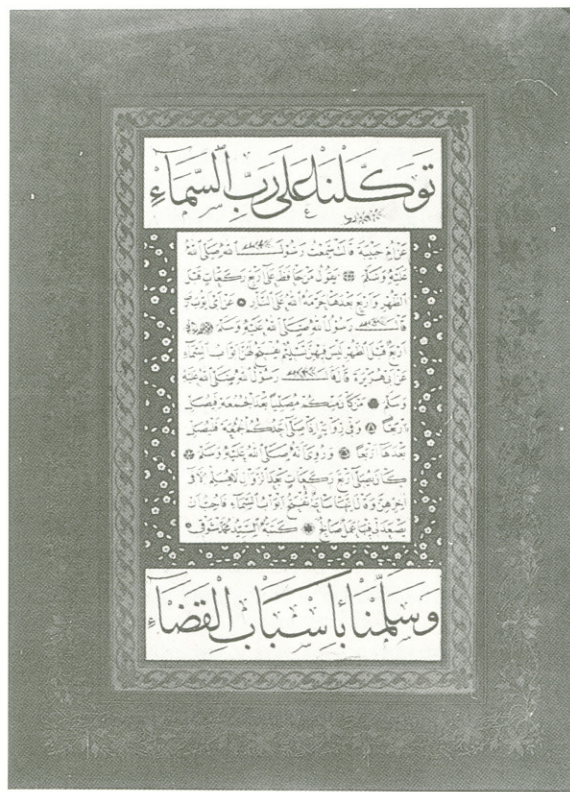 تَوَكَّلْنَا عَلَى رَبِّ السَّمَاءِ
عن ام حبيبة قالت سمعت رسول الله صلى الله
عليه وسلم يقول من حافظ على اربع ركعات قبل
الظهر واربع بعدها حرمه الله على النار عن ابي ايوب
قال رسول الله صلى الله عليه وسلم
اربع قبل الظهر ليس فيهن تسليم تفتح لهن ابواب السماء
عن ابي هريرة قال قال رسول الله صلى الله عليه
وسلم من كان منكم مصليا بعد الجمعة فليصل
اربعا وفي رواية اذا صلى احدكم الجمعة فليصل
بعدها اربعا وروي انه صلى الله عليه وسلم
كان يصلي اربع ركعات بعد الزوال لا يسلم الا في
اخرهن وقال انها ساعة تفتح ابواب السماء فاحب ان
يصعد لي فيها عمل صالح كتبه السيد محمد شوقي
وَسَلَّمْنَا بِأَسْبَابِ الْقَضَاءِ